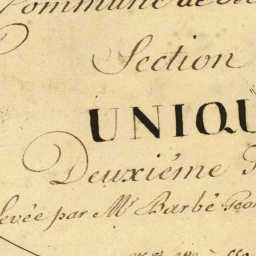 Commune de
Section
UNIQU
Deuxiéme
levée par Mr Barbé Geo